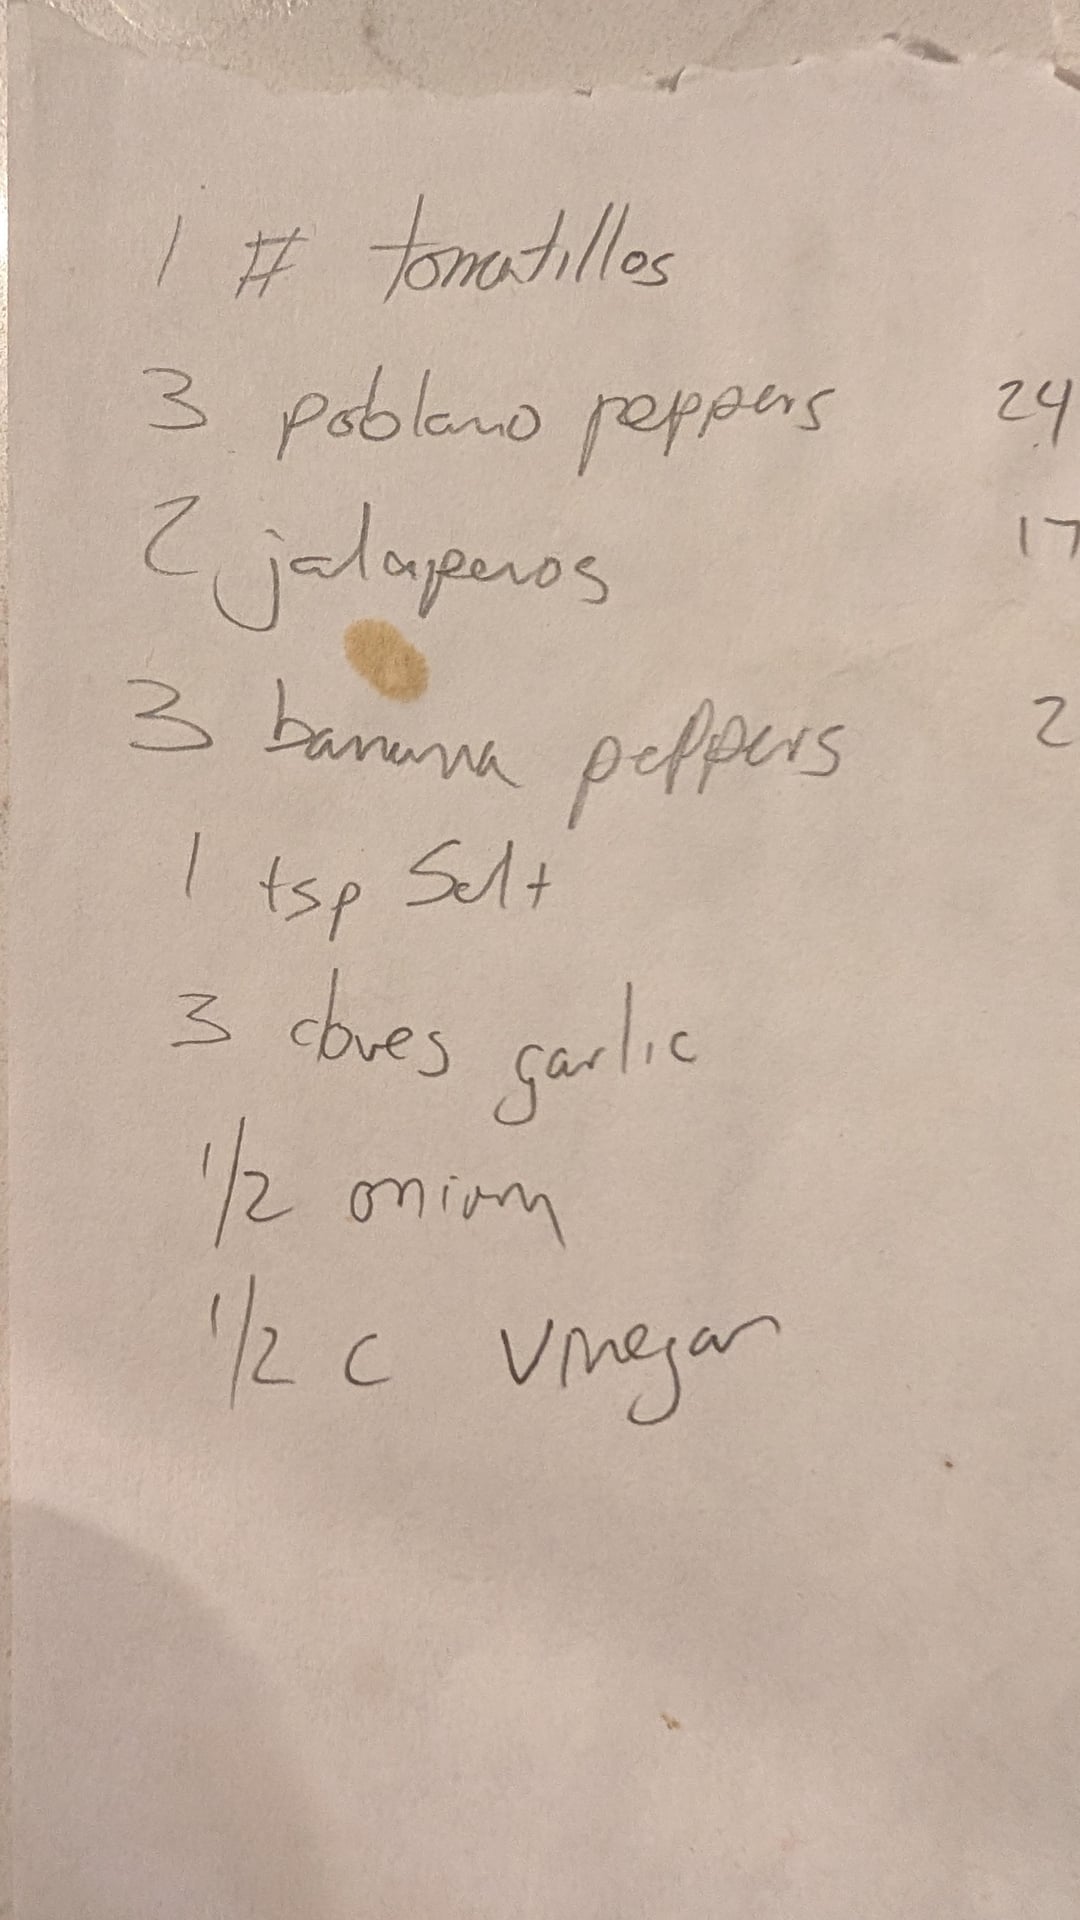 1 # tomatillos
3 poblano peppers 24
2 jalapenos 17
3 banana peppers 2
1 tsp Salt
3 cloves garlic
1/2 onion
1/2 c vinegar